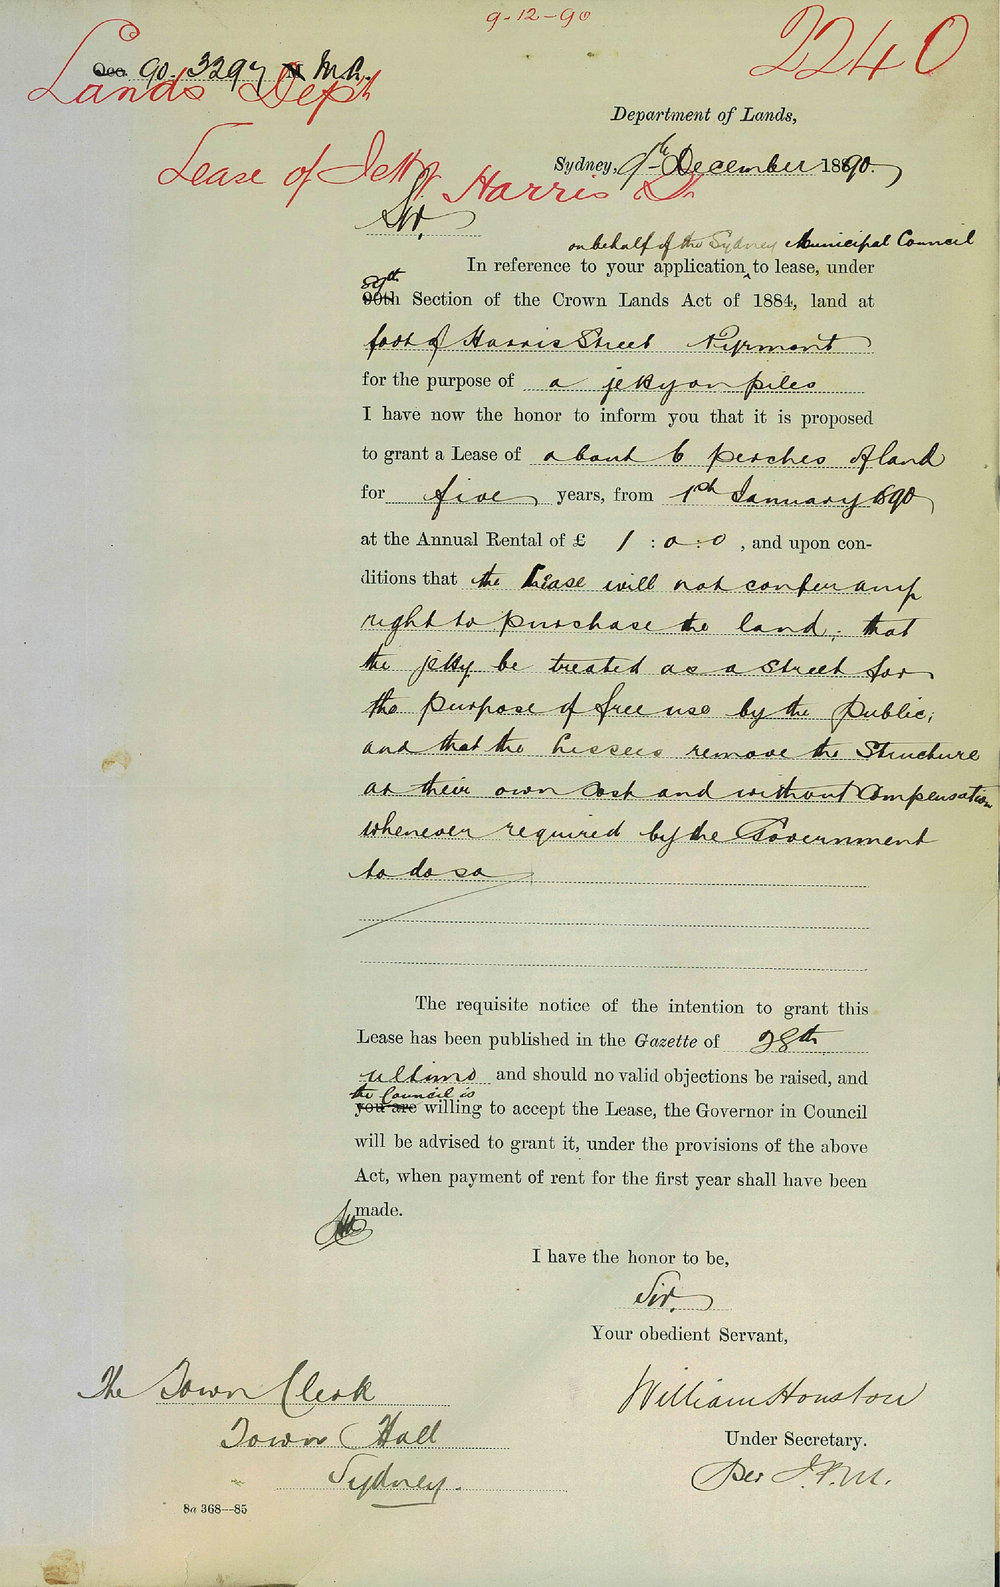 9-12-90
2240
Occ. 90.3297 M.A.
Lands Dept
Department of Lands,
Sydney, 9th December 1890.
Lease of Jetty Harris St
Sir,
on behalf of the Sydney Municipal Council
In reference to your application to lease, under
89th
90th Section of the Crown Lands Act of 1884, land at
foot of Harris Street Pyrmont
for the purpose of a jetty on piles
I have now the honor to inform you that it is proposed
to grant a Lease of about 6 perches of land
for five years, from 1st January 1890
at the Annual Rental of £ 1 : 0 : 0 , and upon con-
ditions that the Lease will not confer any
right to purchase the land; that
the jetty be treated as a Street for
the purpose of free use by the public;
and that the Lessees remove the Structure
at their own cost and without Compensation
whenever required by the Government
to do so
The requisite notice of the intention to grant this
Lease has been published in the Gazette of 28th
ultimo and should no valid objections be raised, and
the Council is
you are willing to accept the Lease, the Governor in Council
will be advised to grant it, under the provisions of the above
Act, when payment of rent for the first year shall have been
made.
I have the honor to be,
Sir,
Your obedient Servant,
William Houston
Under Secretary.
Per J.P.M.
The Town Clerk
Town Hall
Sydney.
8a 368—85